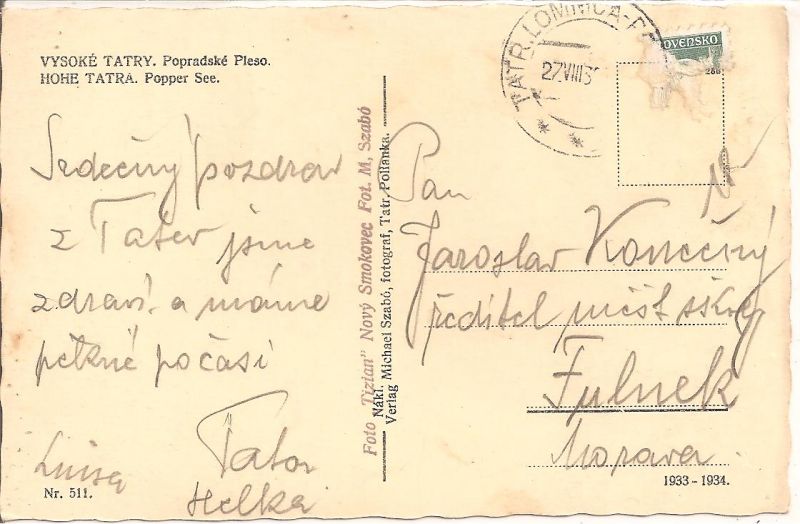 VYSOKÉ TATRY. Popradské Pleso.
HOHE TATRA. Popper See.
Srdečný pozdrav
z Tater jsme
zdraví. a máme
pěkné počasí
Tátor
Luisa
Helka
Nr. 511.
Foto "Tizian" Nový Smokovec Fot. M. Szabó
Nákl. Michael Szabó, fotograf, Tatr. Polianka.
Verlag
TATR. LOMNICA
27.VIII.3
SLOVENSKO
Pan
Jaroslav Konečný
ředitel měšť. školy
Fulnek
Morava
1933-1934.